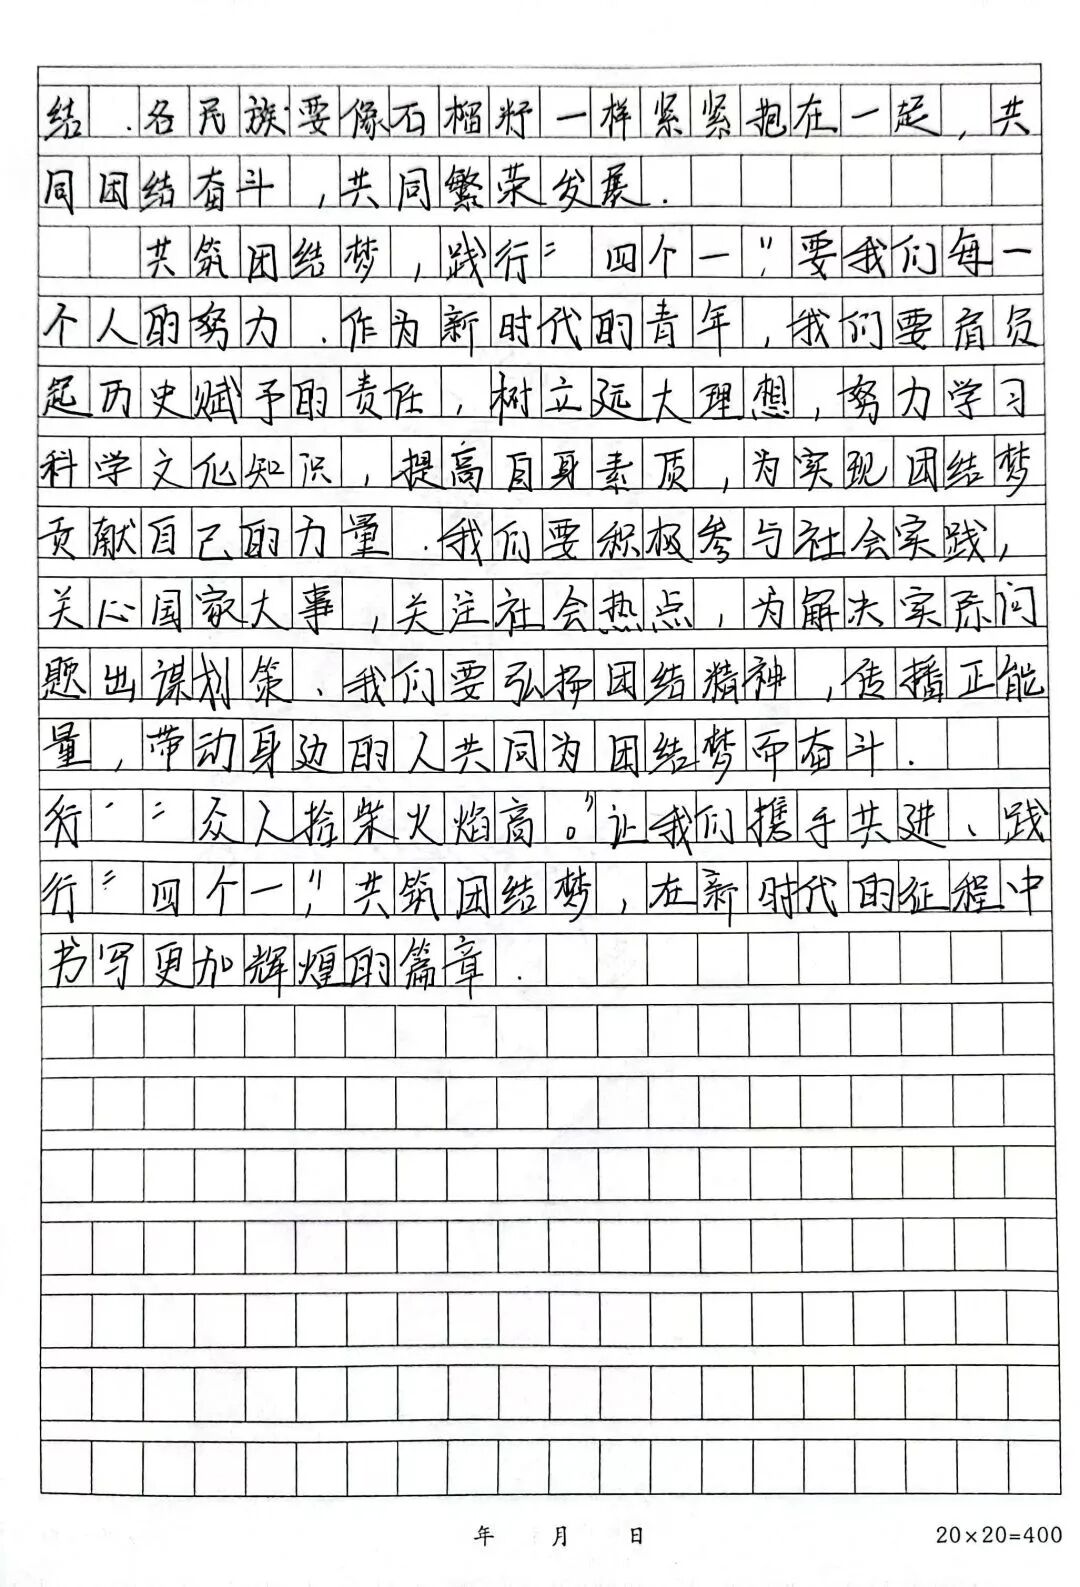 结.各民族要像石榴籽一样紧紧抱在一起,共
同团结奋斗,共同繁荣发展.
共筑团结梦,践行“四个一”,要我们每一
个人的努力.作为新时代的青年,我们要肩负
起历史赋予的责任,树立远大理想,努力学习
科学文化知识,提高自身素质,为实现团结梦
贡献自己的力量.我们要积极参与社会实践,
关心国家大事,关注社会热点,为解决实际问
题出谋划策、我们要弘扬团结精神,传播正能
量,带动身边的人共同为团结梦而奋斗.
行“众人拾柴火焰高。”让我们携手共进、践
行“四个一”,共筑团结梦,在新时代的征程中
书写更加辉煌的篇章.
年 月 日 20×20=400